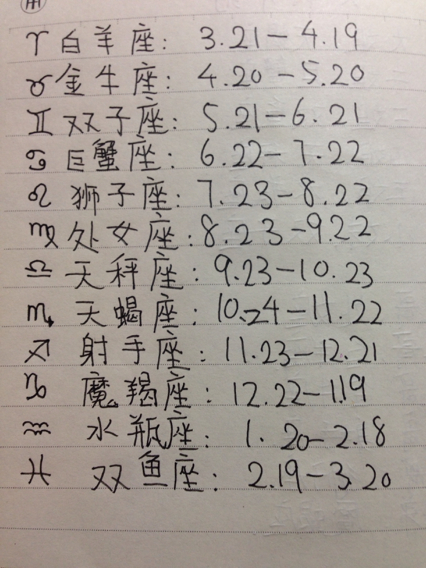 ♈ 白羊座: 3.21-4.19
♉ 金牛座: 4.20-5.20
♊ 双子座: 5.21-6.21
♋ 巨蟹座: 6.22-7.22
♌ 狮子座: 7.23-8.22
♍ 处女座: 8.23-9.22
♎ 天秤座: 9.23-10.23
♏ 天蝎座: 10.24-11.22
♐ 射手座: 11.23-12.21
♑ 魔羯座: 12.22-1.19
♒ 水瓶座: 1.20-2.18
♓ 双鱼座: 2.19-3.20